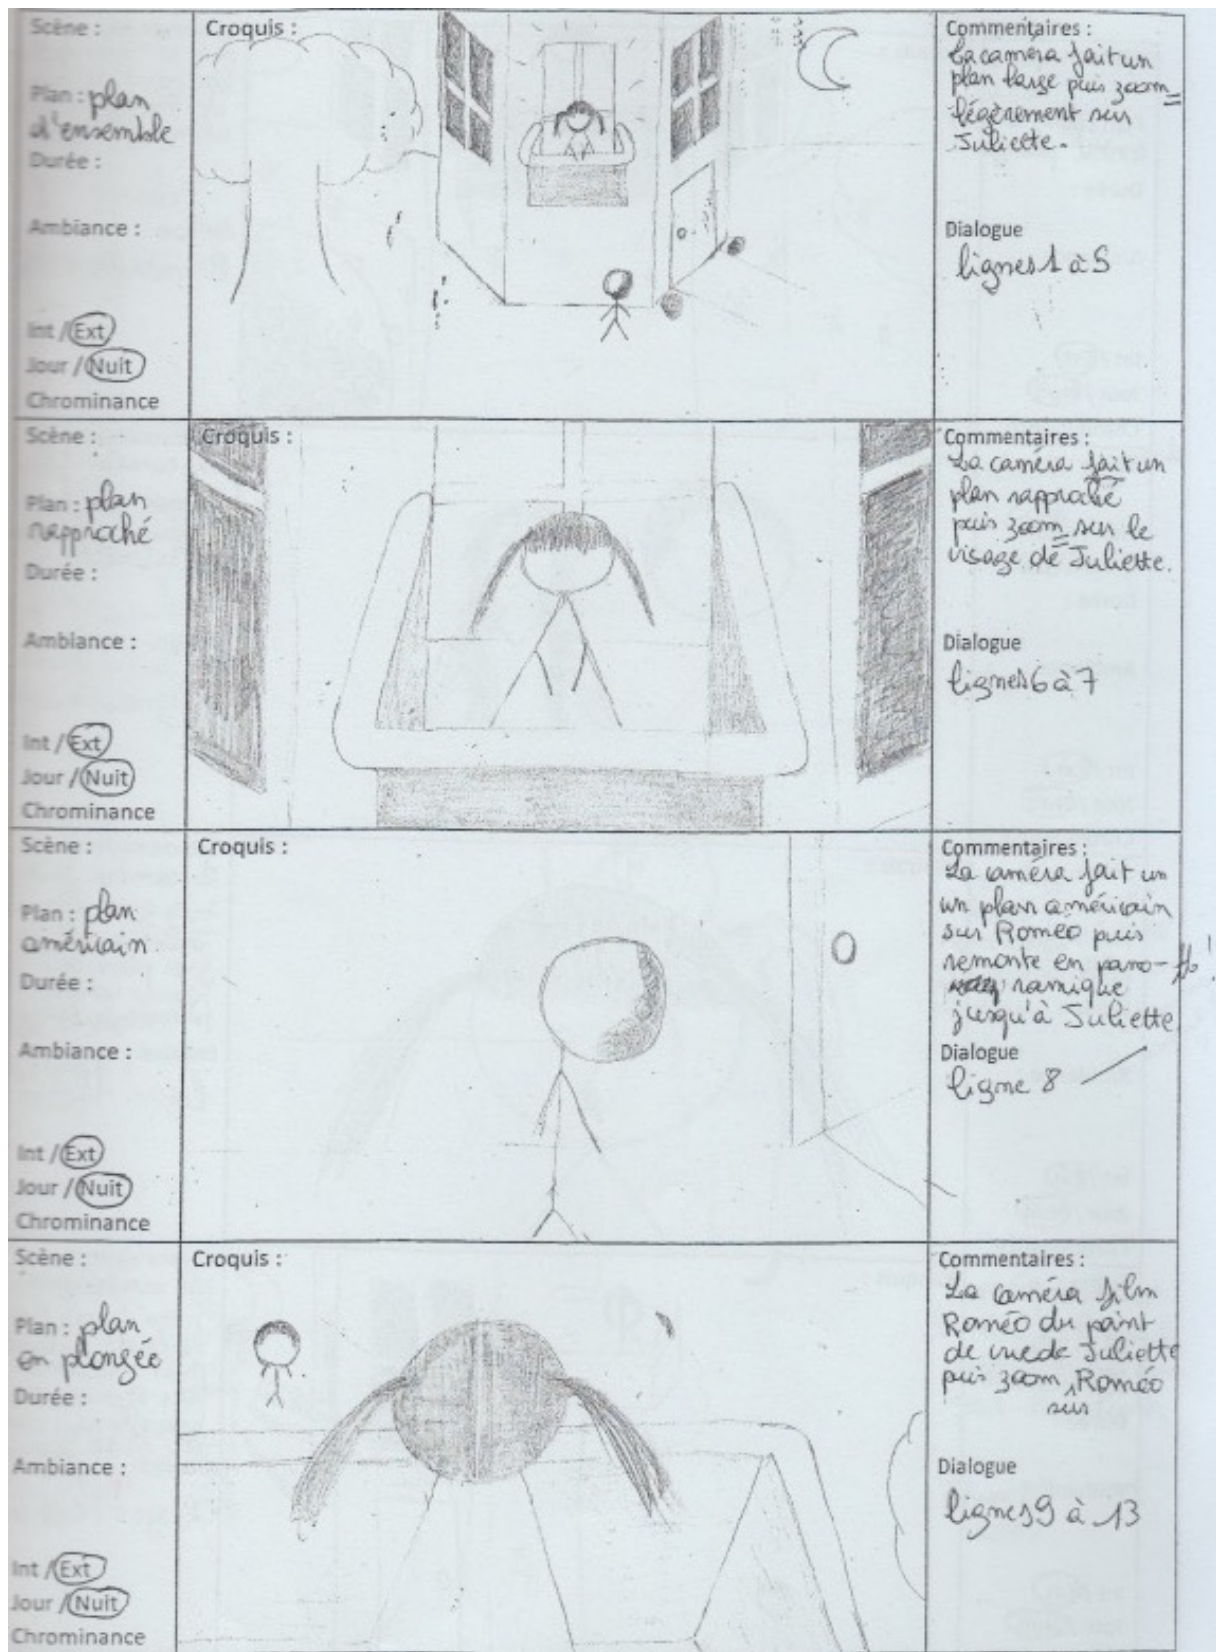 Scène :
Plan : plan
d'ensemble
Durée :
Ambiance :
Int / Ext
Jour / Nuit
Chrominance
Croquis :
Commentaires :
La caméra fait un
plan large puis zoom
légèrement sur
Juliette.
Dialogue
lignes 1 à 5
Scène :
Plan : plan
rapproché
Durée :
Ambiance :
Int / Ext
Jour / Nuit
Chrominance
Croquis :
Commentaires :
La caméra fait un
plan rapproché
puis zoom sur le
visage de Juliette.
Dialogue
lignes 6 à 7
Scène :
Plan : plan
américain
Durée :
Ambiance :
Int / Ext
Jour / Nuit
Chrominance
Croquis :
Commentaires :
La caméra fait un
un plan américain
sur Roméo puis
remonte en pano-
ramique
jusqu'à Juliette
Dialogue
ligne 8
Scène :
Plan : plan
en plongée
Durée :
Ambiance :
Int / Ext
Jour / Nuit
Chrominance
Croquis :
Commentaires :
La caméra film
Roméo du point
de vue de Juliette
puis zoom sur Roméo
Dialogue
lignes 9 à 13